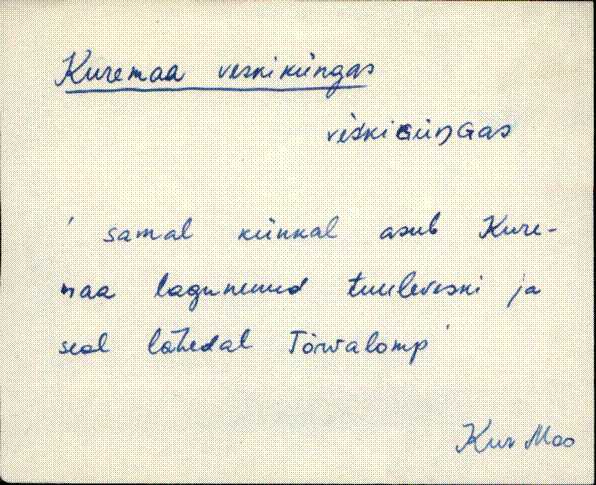 Kuremaa veskiküngas
veskiGüŋGas
' samal künkal asub Kure-
maa lagunenud tuuleveski ja
seal lähedal Tõrvalomp '
Kur Mas